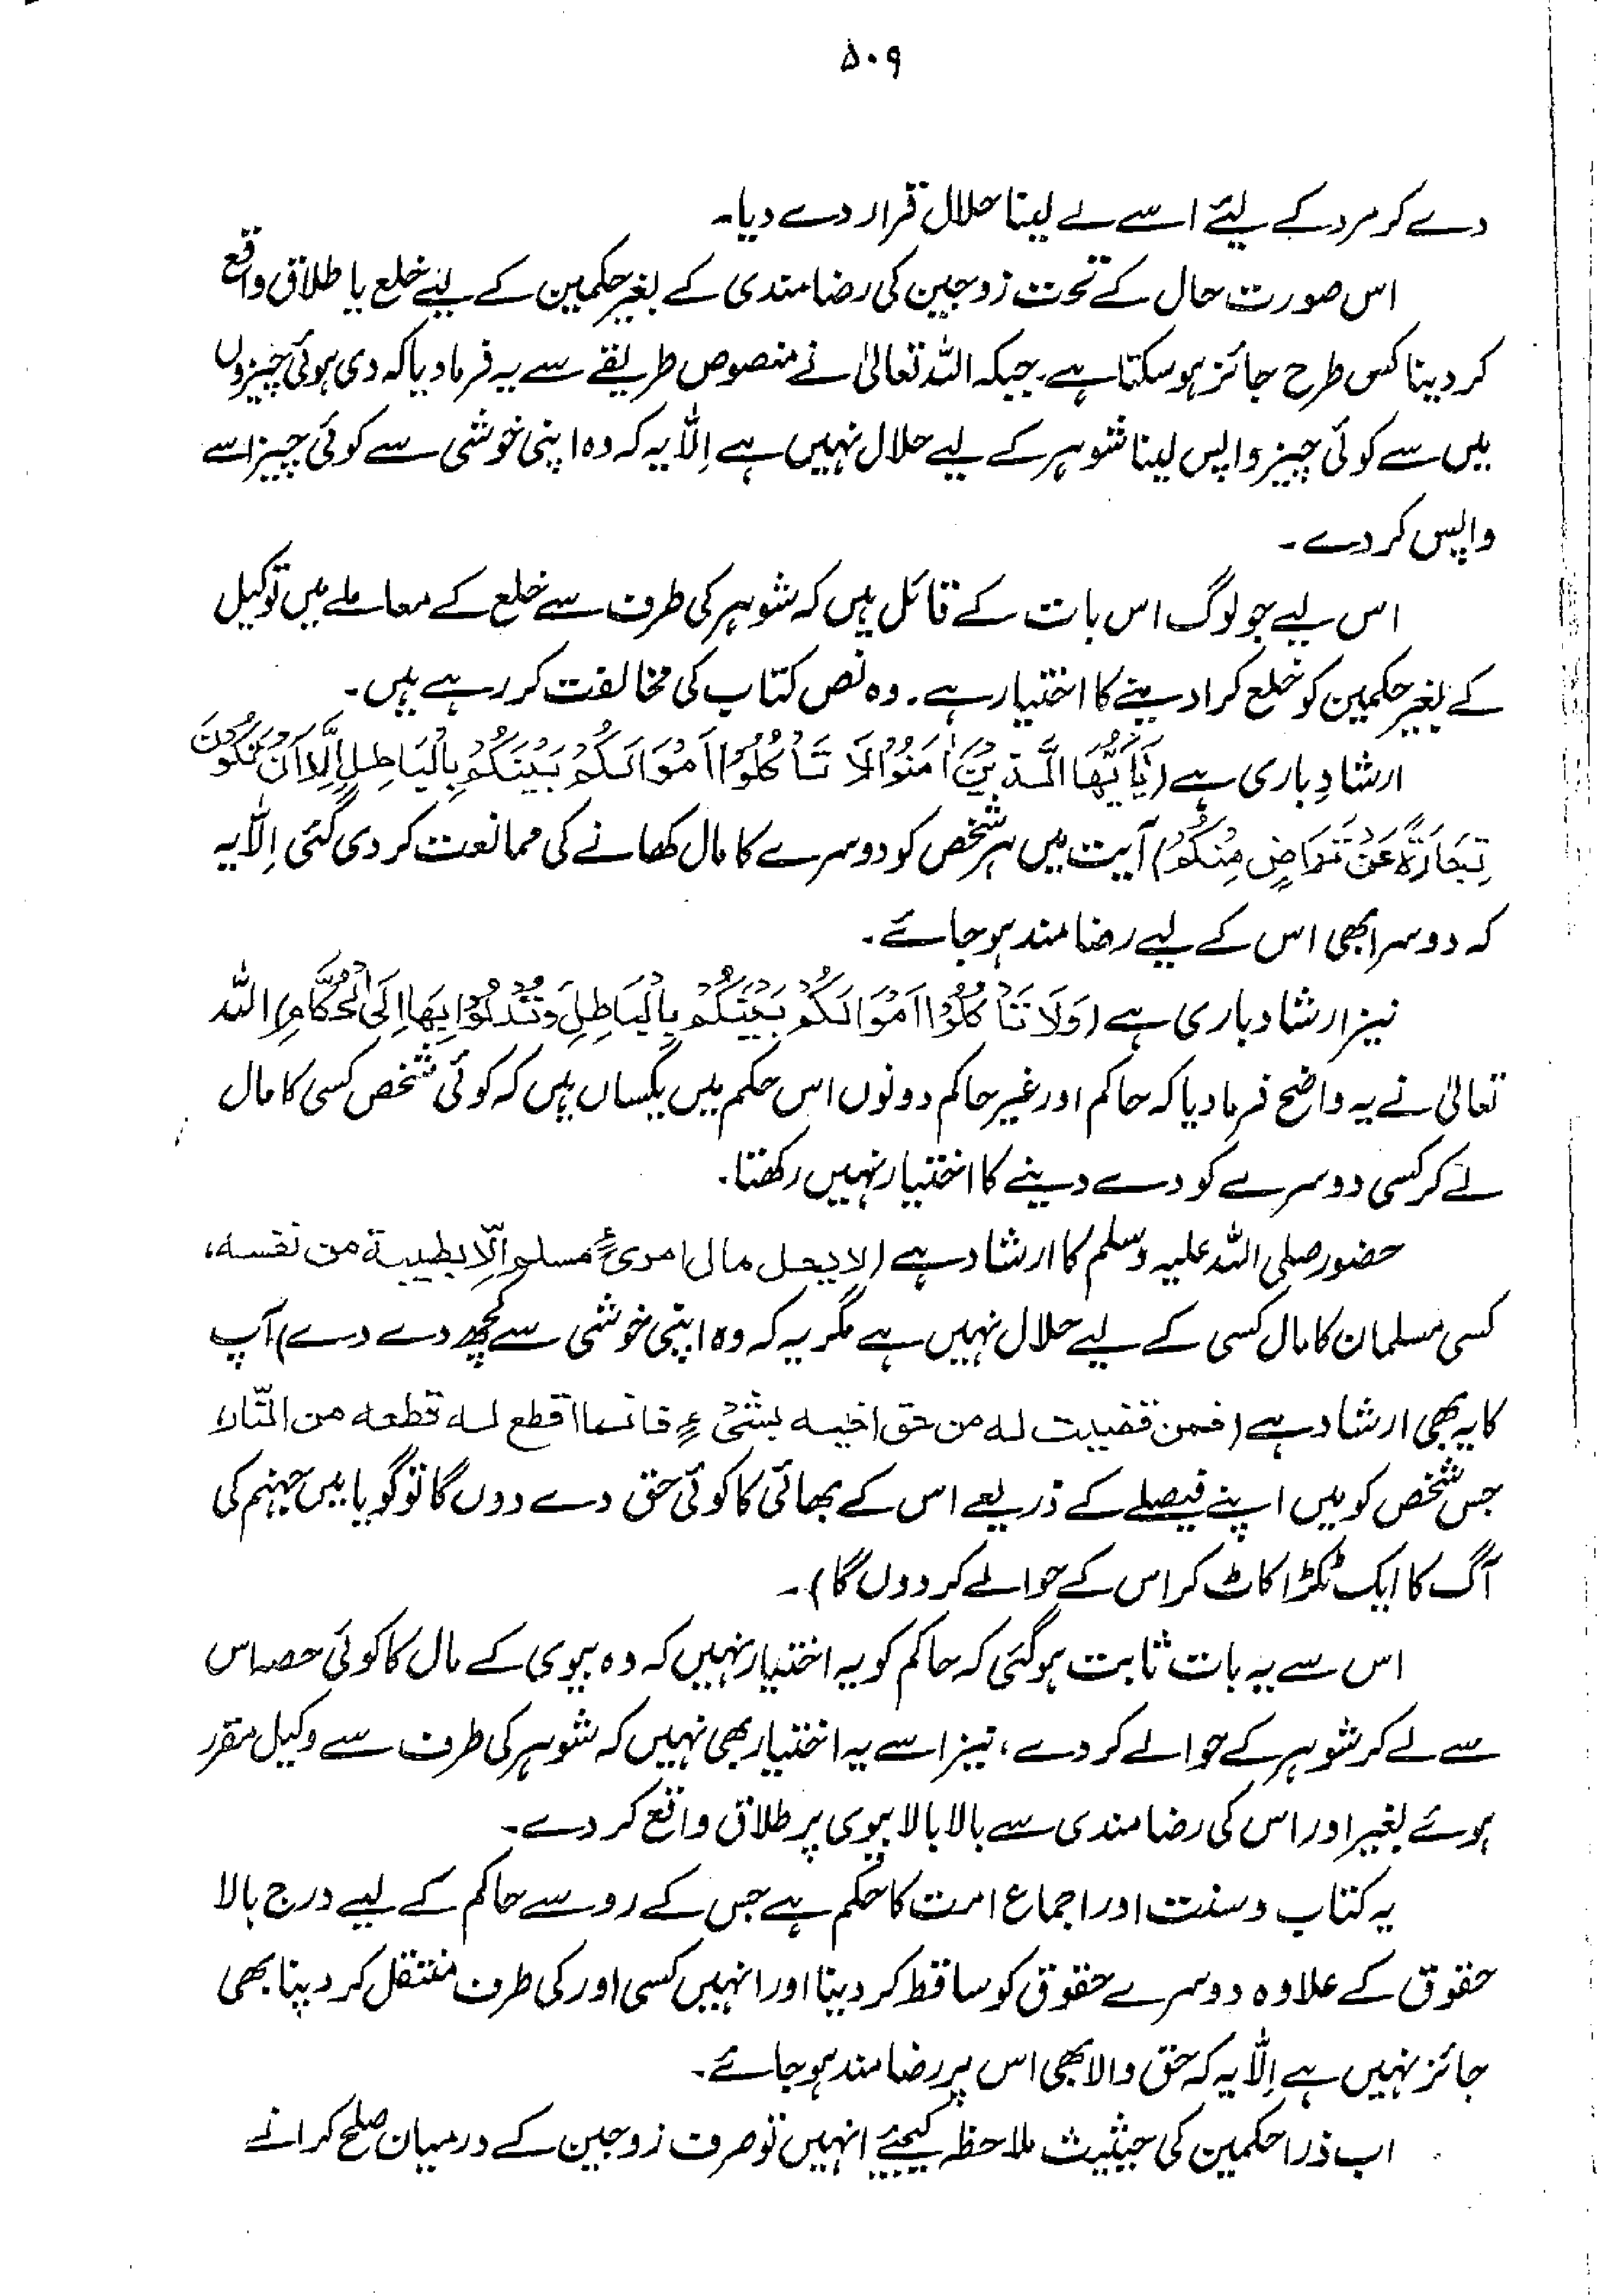 ۵۰۹
دے کر مرد کے لیئے اسے لے لینا حلال قرار دے دیا۔
اس صورت حال کے تحت زوجین کی رضامندی کے بغیر حکمین کے لیئے خلع یا طلاق واقع
کر دینا کس طرح جائز ہو سکتا ہے۔ جبکہ اللہ تعالیٰ نے منصوص طریقے سے یہ فرما دیا کہ دی ہوئی چیزوں
میں سے کوئی چیز واپس لینا شوہر کے لیے حلال نہیں ہے اِلّا یہ کہ وہ اپنی خوشی سے کوئی چیز اسے
واپس کر دے۔
اس لیے جو لوگ اس بات کے قائل ہیں کہ شوہر کی طرف سے خلع کے معاملے میں توکیل
کے بغیر حکمین کو خلع کرا دینے کا اختیار ہے۔ وہ نص کتاب کی مخالفت کر رہے ہیں۔
ارشادِ باری ہے (یَٰٓاَیُّهَا الَّذِیْنَ اٰمَنُوْا لَا تَاْکُلُوْٓا اَمْوَالَکُمْ بَیْنَکُمْ بِالْبَاطِلِ اِلَّآ اَنْ تَکُوْنَ
تِجَارَةً عَنْ تَرَاضٍ مِنْکُمْ) آیت میں ہر شخص کو دوسرے کا مال کھانے کی ممانعت کر دی گئی اِلّا یہ
کہ دوسرا بھی اس کے لیے رضامند ہو جائے۔
نیز ارشاد باری ہے (وَلَا تَاْکُلُوْٓا اَمْوَالَکُمْ بَیْنَکُمْ بِالْبَاطِلِ وَتُدْلُوْا بِهَآ اِلَی الْحُکَّامِ) اللہ
تعالیٰ نے یہ واضح فرما دیا کہ حاکم اور غیر حاکم دونوں اس حکم میں یکساں ہیں کہ کوئی شخص کسی کا مال
لے کر کسی دوسرے کو دے دینے کا اختیار نہیں رکھتا۔
حضور صلی اللہ علیہ وسلم کا ارشاد ہے (لا یحل مال امرئٍ مسلم اِلّا بطیبة من نفسه،
کسی مسلمان کا مال کسی کے لیے حلال نہیں ہے مگر یہ کہ وہ اپنی خوشی سے کچھ دے دے) آپ
کا یہ بھی ارشاد ہے (فمن قضیت له من حق اخیه بشیٔ ءٍ فانما اقطع له قطعه من النّار
جس شخص کو میں اپنے فیصلے کے ذریعے اس کے بھائی کا کوئی حق دے دوں گا تو گویا میں جہنم کی
آگ کا ایک ٹکڑا کاٹ کر اس کے حوالے کر دوں گا)۔
اس سے یہ بات ثابت ہو گئی کہ حاکم کو یہ اختیار نہیں کہ وہ بیوی کے مال کا کوئی حصہ اس
سے لے کر شوہر کے حوالے کر دے، نیز اسے یہ اختیار بھی نہیں کہ شوہر کی طرف سے وکیل مقرر
ہوئے بغیر اور اس کی رضامندی سے بالا بالا بیوی پر طلاق واقع کر دے۔
یہ کتاب و سنت اور اجماع امت کا حکم ہے جس کے رو سے حاکم کے لیے درج بالا
حقوق کے علاوہ دوسرے حقوق کو ساقط کر دینا اور انہیں کسی اور کی طرف منتقل کر دینا بھی
جائز نہیں ہے اِلّا یہ کہ حق والا بھی اس پر رضامند ہو جائے۔
اب ذرا حکمین کی حیثیت ملاحظہ کیجئے انہیں تو صرف زوجین کے درمیان صلح کرانے